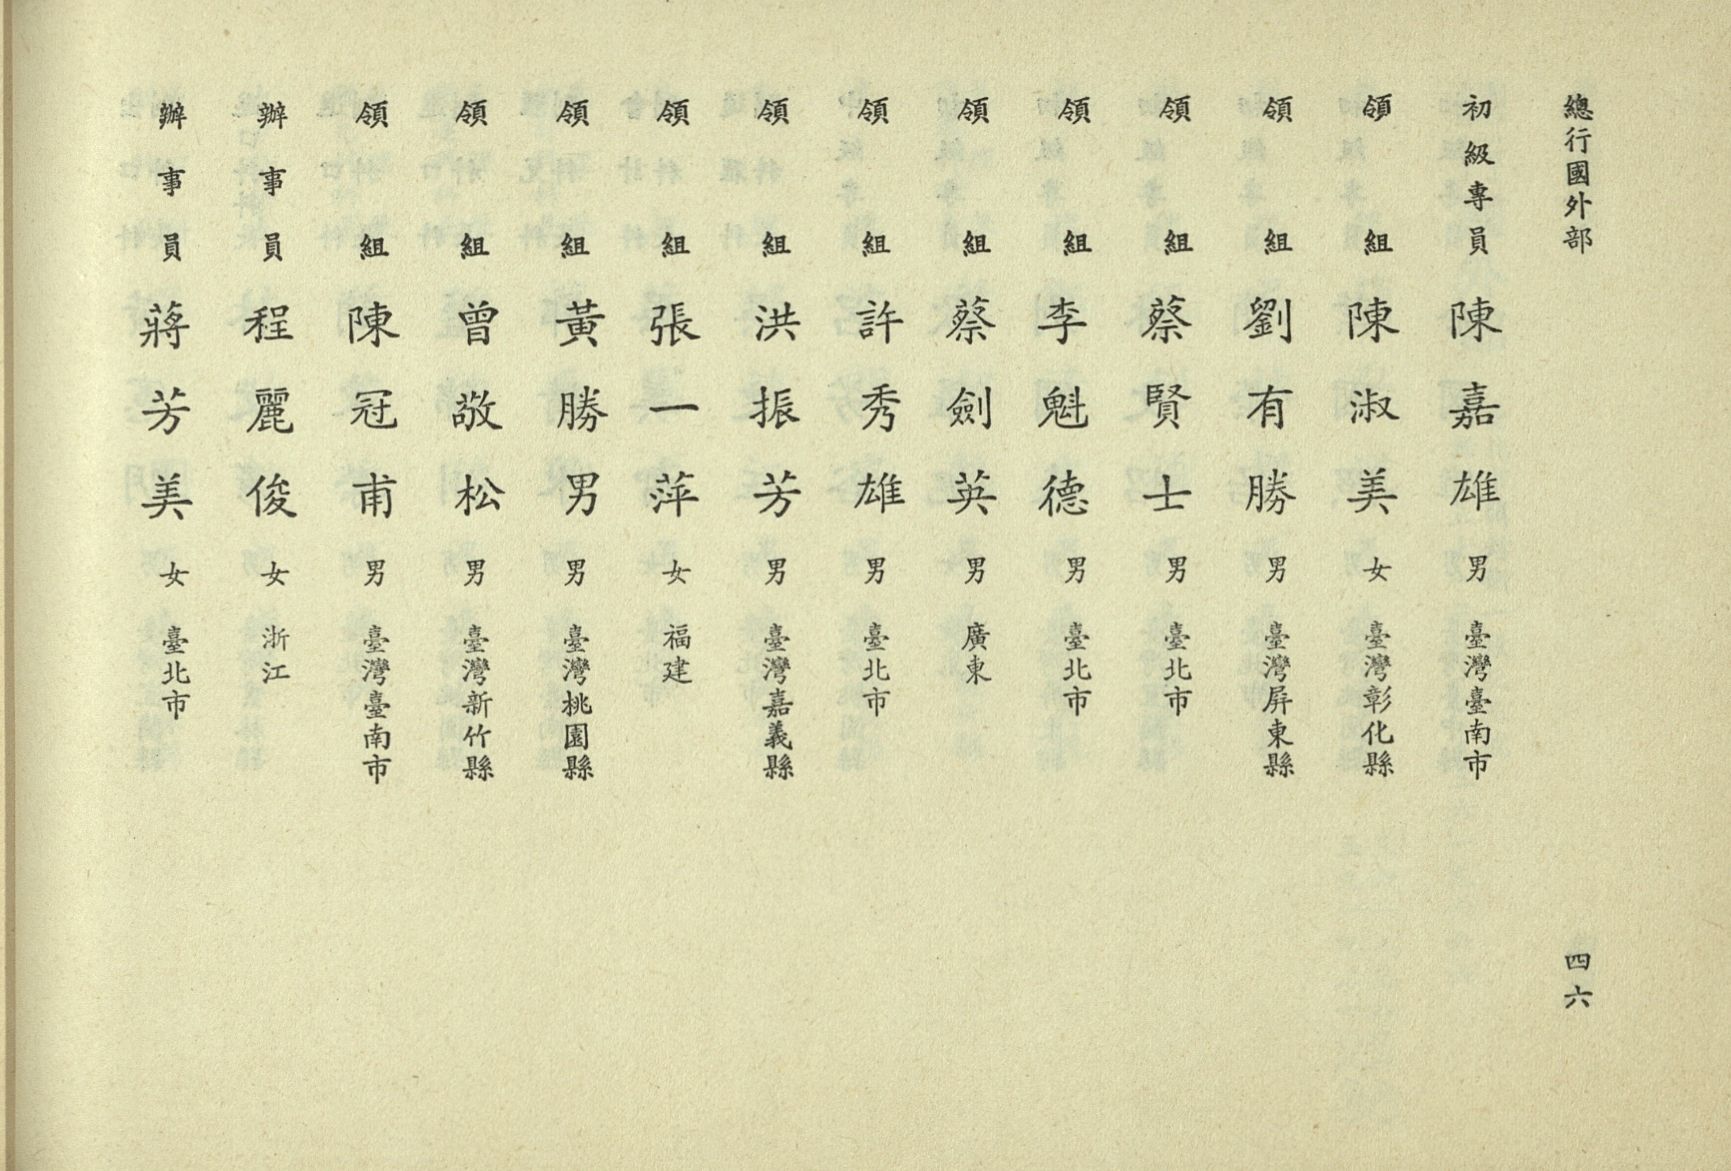 總行國外部
四六
初級專員 陳嘉雄 男 臺灣臺南市
領組 陳淑美 女 臺灣彰化縣
領組 劉有勝 男 臺灣屏東縣
領組 蔡賢士 男 臺北市
領組 李魁德 男 臺北市
領組 蔡劍英 男 廣東
領組 許秀雄 男 臺北市
領組 洪振芳 男 臺灣嘉義縣
領組 張一萍 女 福建
領組 黃勝男 男 臺灣桃園縣
領組 曾敬松 男 臺灣新竹縣
領組 陳冠甫 男 臺灣臺南市
辦事員 程麗俊 女 浙江
辦事員 蔣芳美 女 臺北市